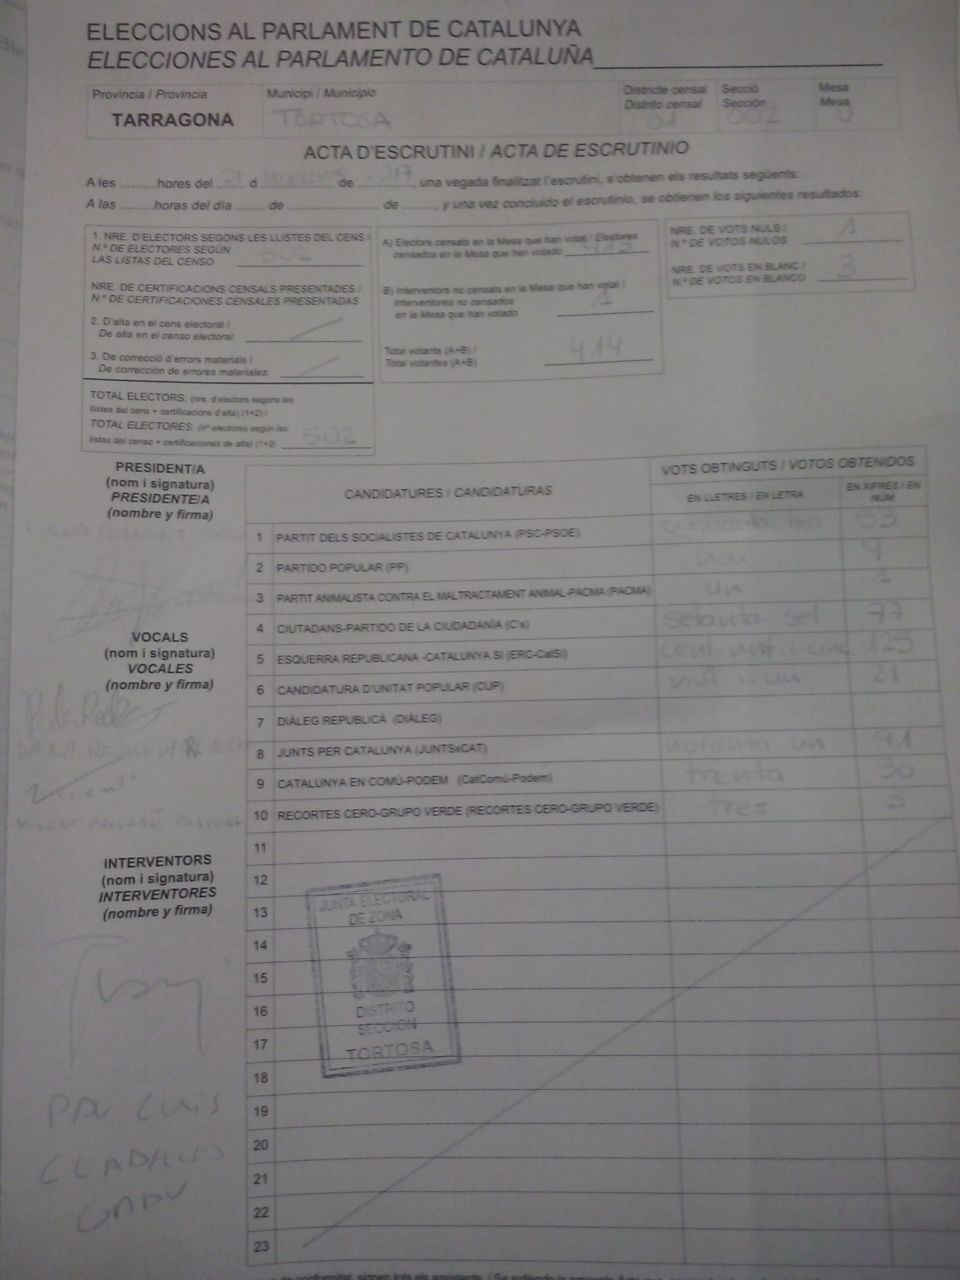 ELECCIONS AL PARLAMENT DE CATALUNYA
ELECCIONES AL PARLAMENTO DE CATALUÑA
Provincia / Provincia
TARRAGONA
Municipi / Municipio
TORTOSA
Districte censal
Distrito censal
01
Secció
Sección
002
Mesa
Mesa
ACTA D'ESCRUTINI / ACTA DE ESCRUTINIO
A les ......... hores del 21 d ......... de 2017, una vegada finalitzat l'escrutini, s'obtenen els resultats següents:
A las ......... horas del día ......... de ......... de ........., y una vez concluido el escrutinio, se obtienen los siguientes resultados:
1. NRE. D'ELECTORS SEGONS LES LLISTES DEL CENS /
N.º DE ELECTORES SEGÚN
LAS LISTAS DEL CENSO 502
NRE. DE CERTIFICACIONS CENSALS PRESENTADES /
N.º DE CERTIFICACIONES CENSALES PRESENTADAS
2. D'alta en el cens electoral /
De alta en el censo electoral:
3. De correcció d'errors materials /
De corrección de errores materiales:
TOTAL ELECTORS: (nre. d'electors segons les
llistes del cens + certificacions d'alta) (1+2) /
TOTAL ELECTORES: (nº electores según las
listas del censo + certificaciones de alta) (1+2) 502
A) Electors censats en la Mesa que han votat / Electores
censados en la Mesa que han votado 413
B) Interventors no censats en la Mesa que han votat /
Interventores no censados
en la Mesa que han votado 1
Total votants (A+B) /
Total votantes (A+B) 414
NRE. DE VOTS NULS /
N.º DE VOTOS NULOS 1
NRE. DE VOTS EN BLANC /
N.º DE VOTOS EN BLANCO 3
PRESIDENT/A
(nom i signatura)
PRESIDENTE/A
(nombre y firma)
VOCALS
(nom i signatura)
VOCALES
(nombre y firma)
INTERVENTORS
(nom i signatura)
INTERVENTORES
(nombre y firma)
CANDIDATURES / CANDIDATURAS
VOTS OBTINGUTS / VOTOS OBTENIDOS
EN LLETRES / EN LETRA
EN XIFRES / EN NUM
1 PARTIT DELS SOCIALISTES DE CATALUNYA (PSC-PSOE) 53
2 PARTIDO POPULAR (PP) nou 9
3 PARTIT ANIMALISTA CONTRA EL MALTRACTAMENT ANIMAL-PACMA (PACMA) un 1
4 CIUTADANS-PARTIDO DE LA CIUDADANÍA (C's) setanta set 77
5 ESQUERRA REPUBLICANA -CATALUNYA SI (ERC-CatSI) cent vint-i-cinc 125
6 CANDIDATURA D'UNITAT POPULAR (CUP) vint-i-un 21
7 DIÀLEG REPUBLICÀ (DIÀLEG)
8 JUNTS PER CATALUNYA (JUNTSxCAT) noranta un 91
9 CATALUNYA EN COMÚ-PODEM (CatComú-Podem) trenta 30
10 RECORTES CERO-GRUPO VERDE (RECORTES CERO-GRUPO VERDE) tres 3
11
12
13
14
15
16
17
18
19
20
21
22
23
JUNTA ELECTORAL
DE ZONA
DISTRITO
SECCION
TORTOSA